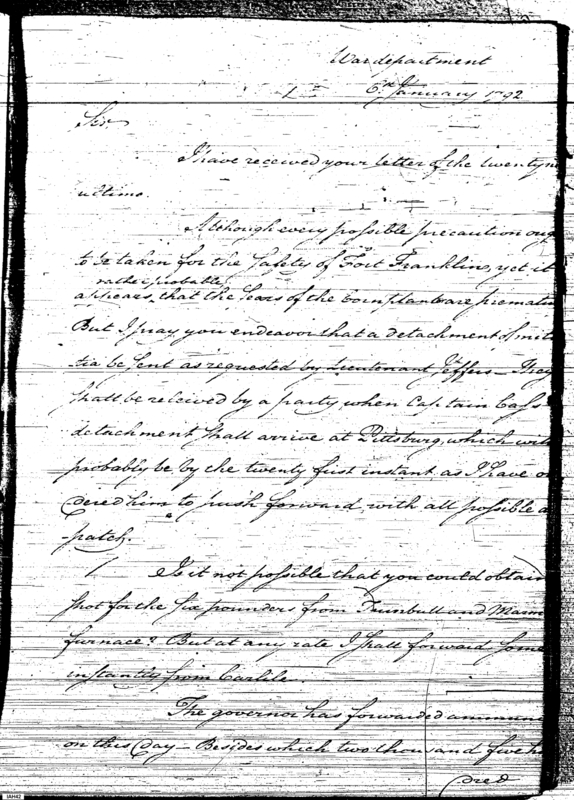 War department
6th January 1792
Sir
I have received your letter of the twentyn
ultimo.
Although every possible precaution oug
to be taken for the safety of Fort Franklin, yet it
rather probable,
appears, that the fears of the Cornplant are prematu
But I pray you endeavor that a detachment of mili
tia be sent as requested by Lieutenant Jeffers – They
shall be received by a party, when Captain Cass's
detachment shall arrive at Pittsburg, which will
probably be by the twenty first instant as I have or
dered him to push forward with all possible d
-patch.
Is it not possible that you could obtain
shot for the six pounders from Turnbull and Marm
furnace? But at any rate I shall forward some
instantly from Carlile.
The governor has forwarded ammun
on this day – Besides which two thousand five h
dred
IAH42